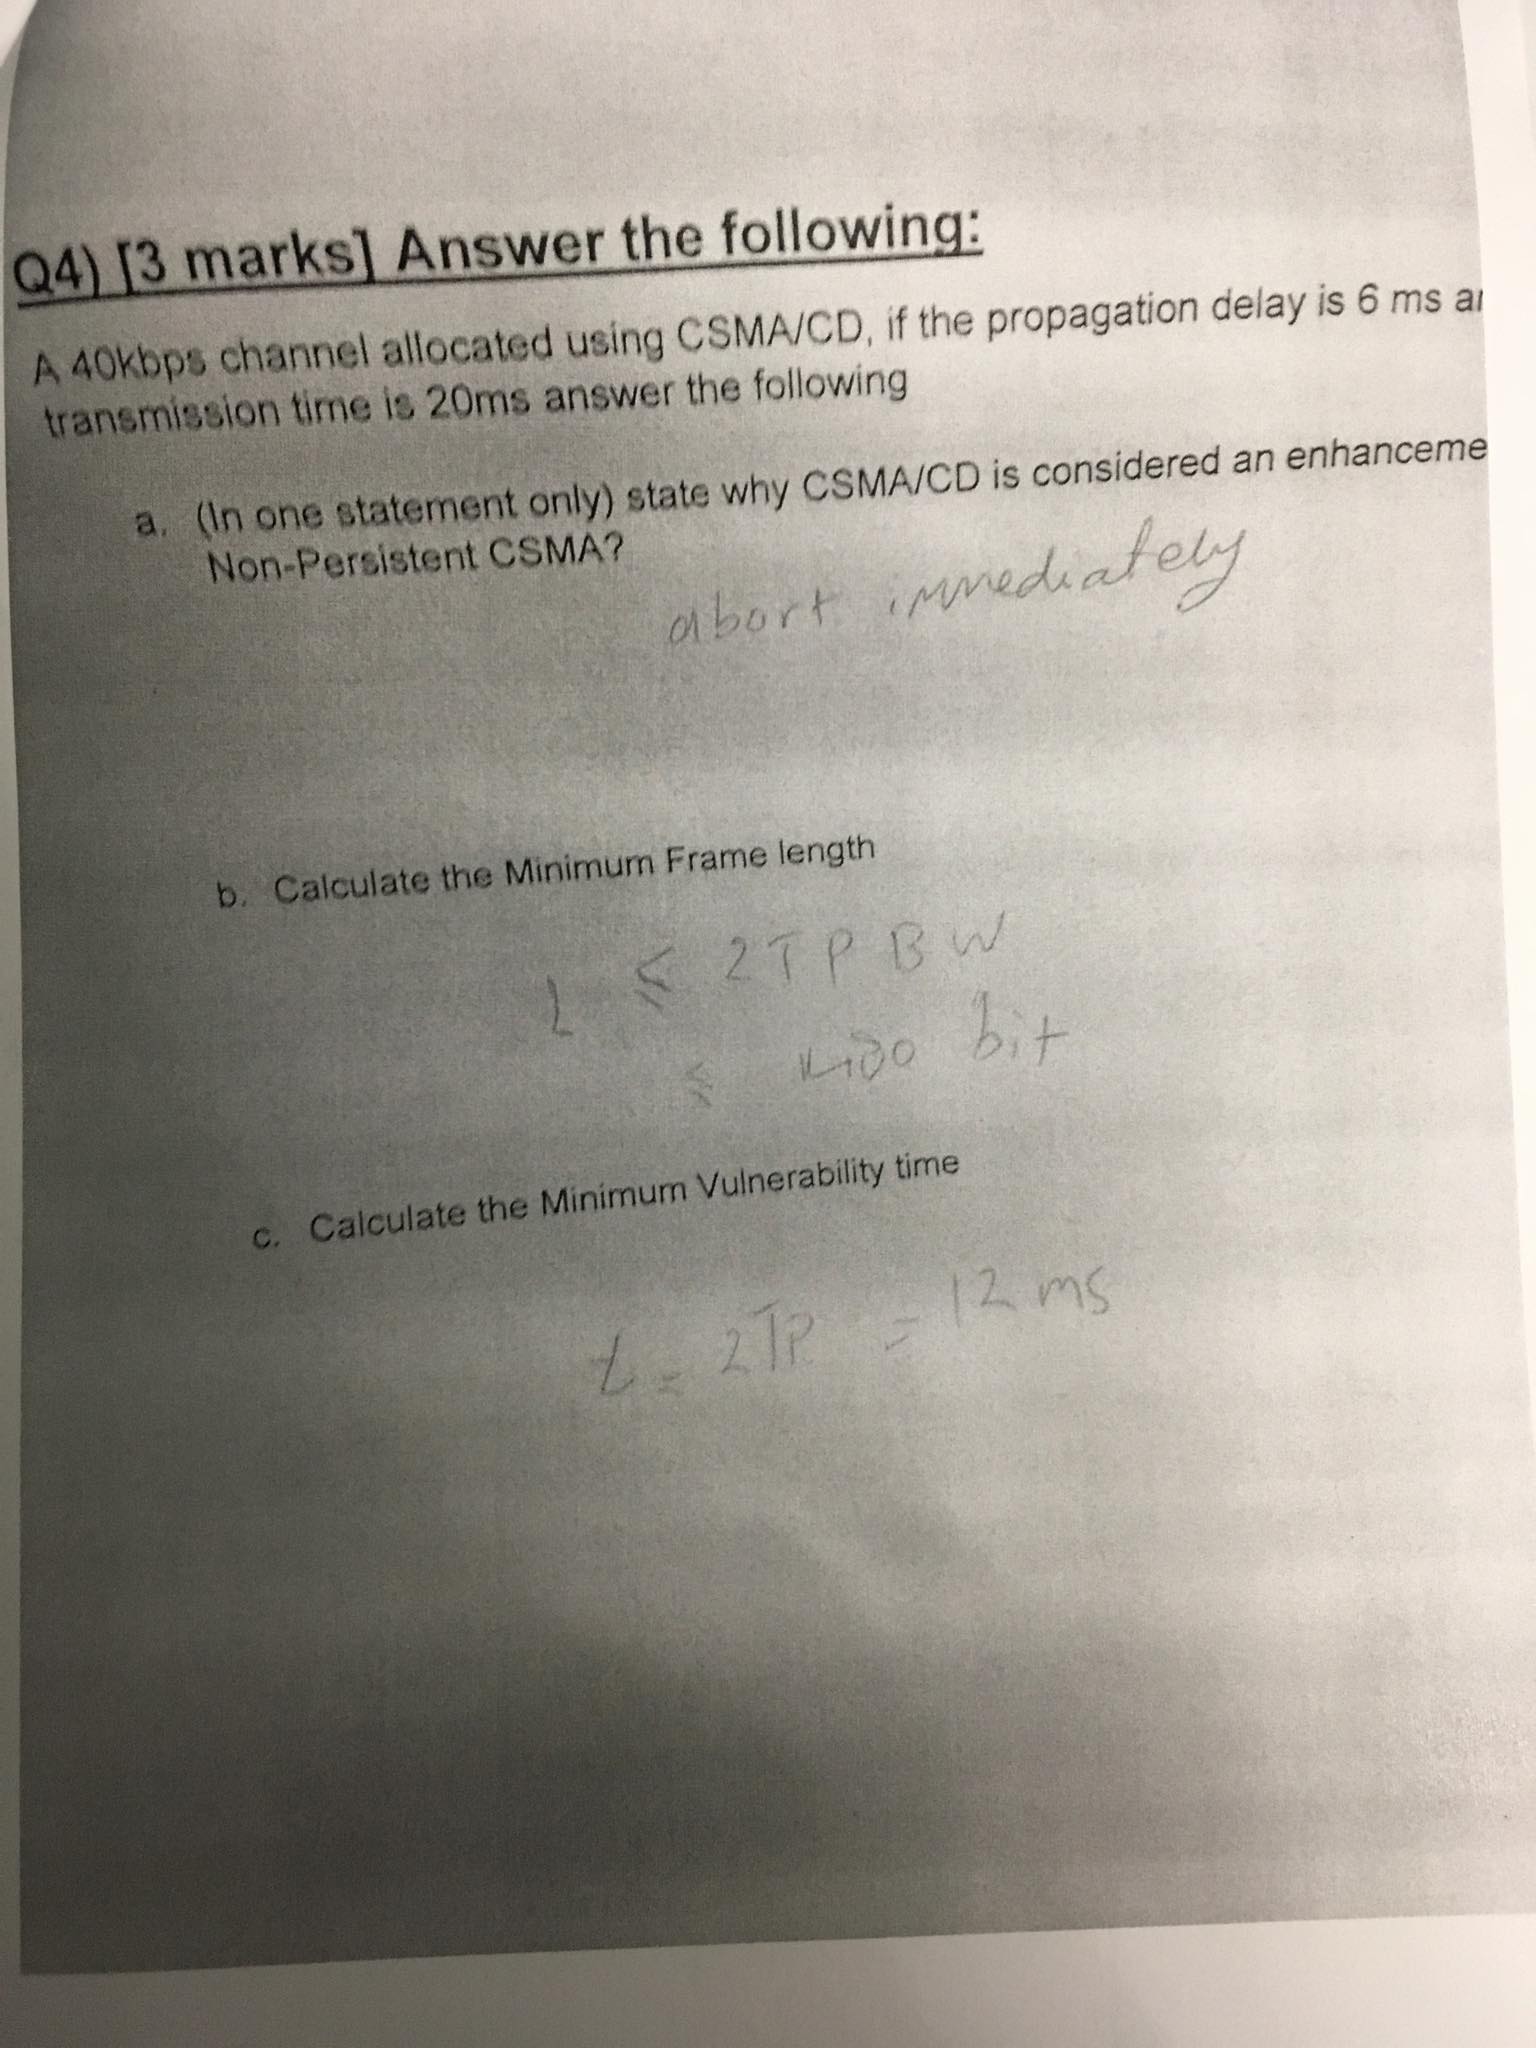 Q4) [3 marks] Answer the following:
A 40kbps channel allocated using CSMA/CD, if the propagation delay is 6 ms a
transmission time is 20ms answer the following
a. (In one statement only) state why CSMA/CD is considered an enhanceme
Non-Persistent CSMA?
abort immediately
b. Calculate the Minimum Frame length
L ≤ 2TP BW
≤ 480 bit
c. Calculate the Minimum Vulnerability time
t = 2TP = 12 ms